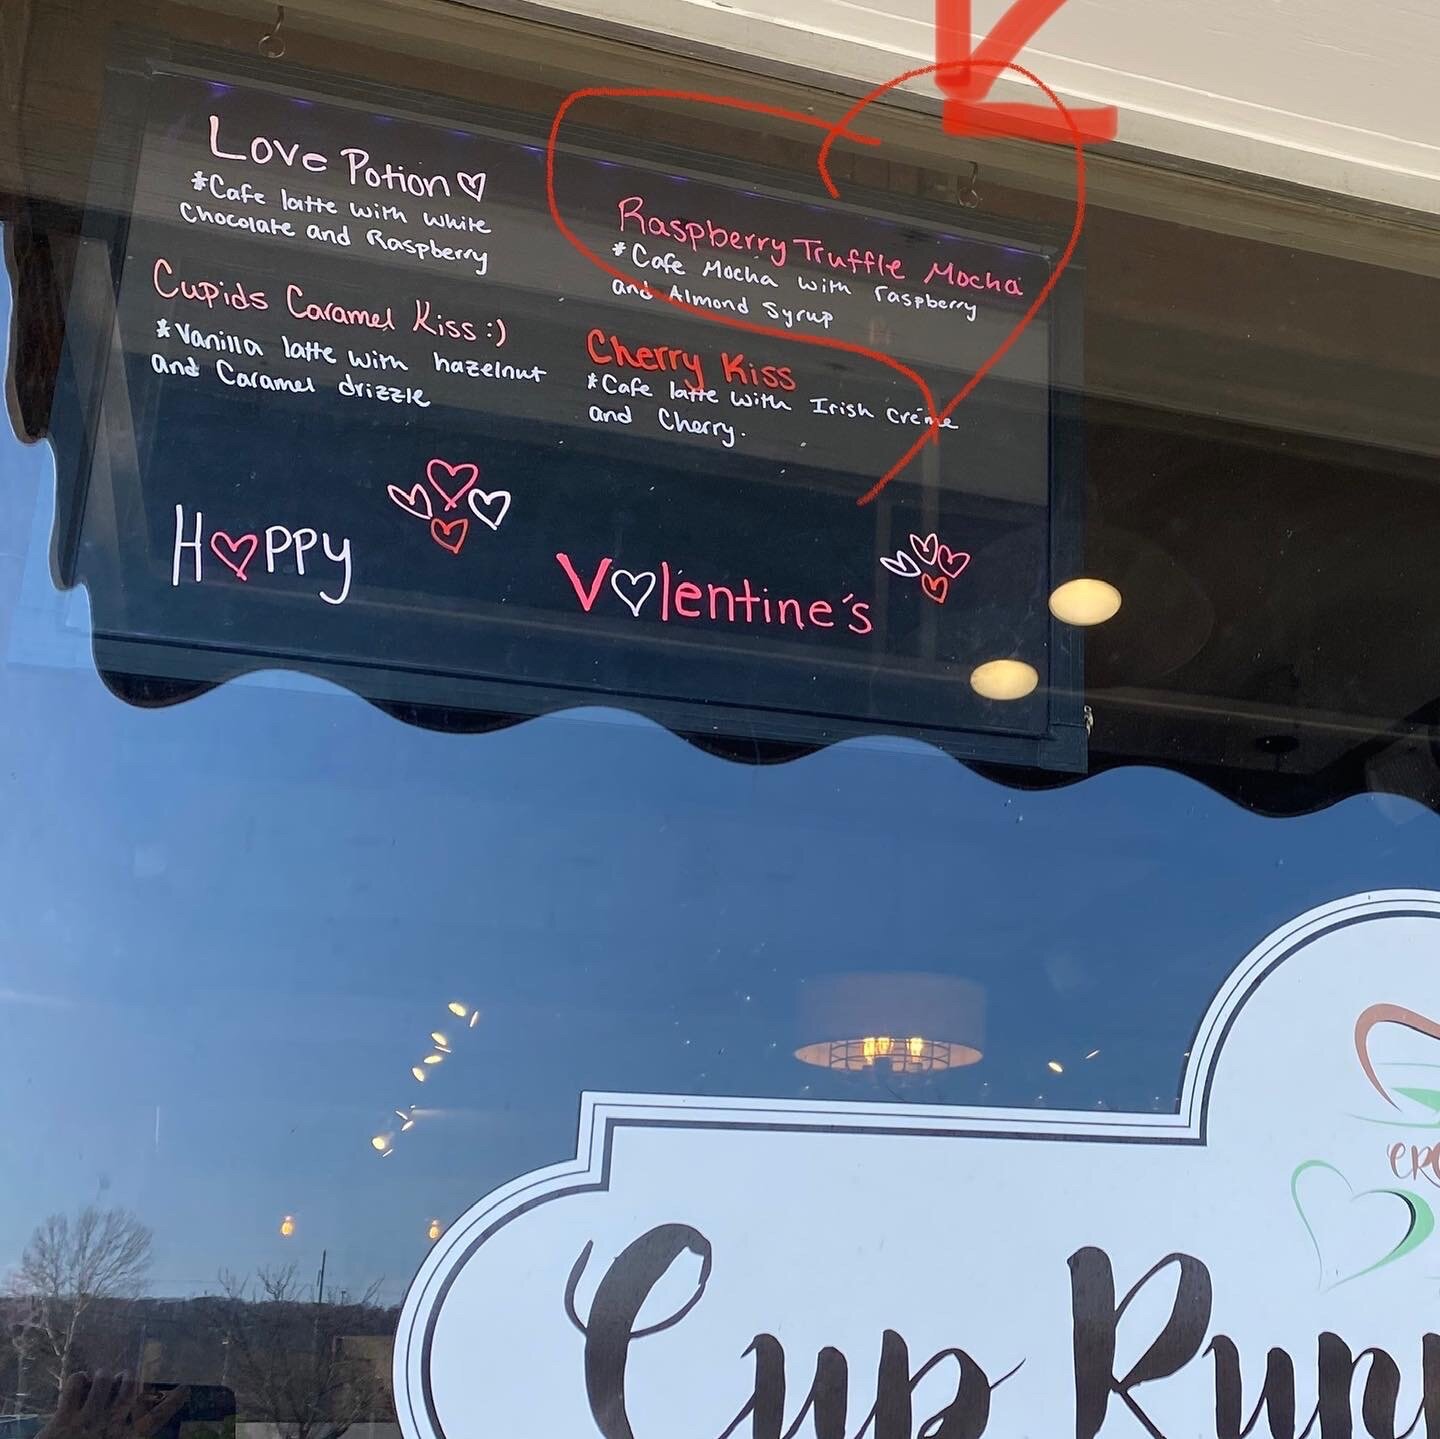 Love Potion
*Cafe latte with white
Chocolate and Raspberry
Cupids Caramel Kiss :)
*Vanilla latte with hazelnut
and Caramel drizzle
Raspberry Truffle Mocha
*Cafe Mocha with raspberry
and Almond Syrup
Cherry Kiss
*Cafe latte with Irish créme
and Cherry.
Happy Valentine's
Cup